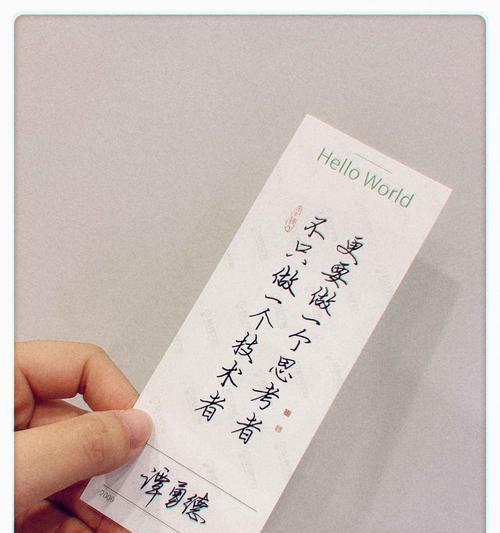 Hello World
不只做一个技术者
更要做一个思考者
谭勇德
2009